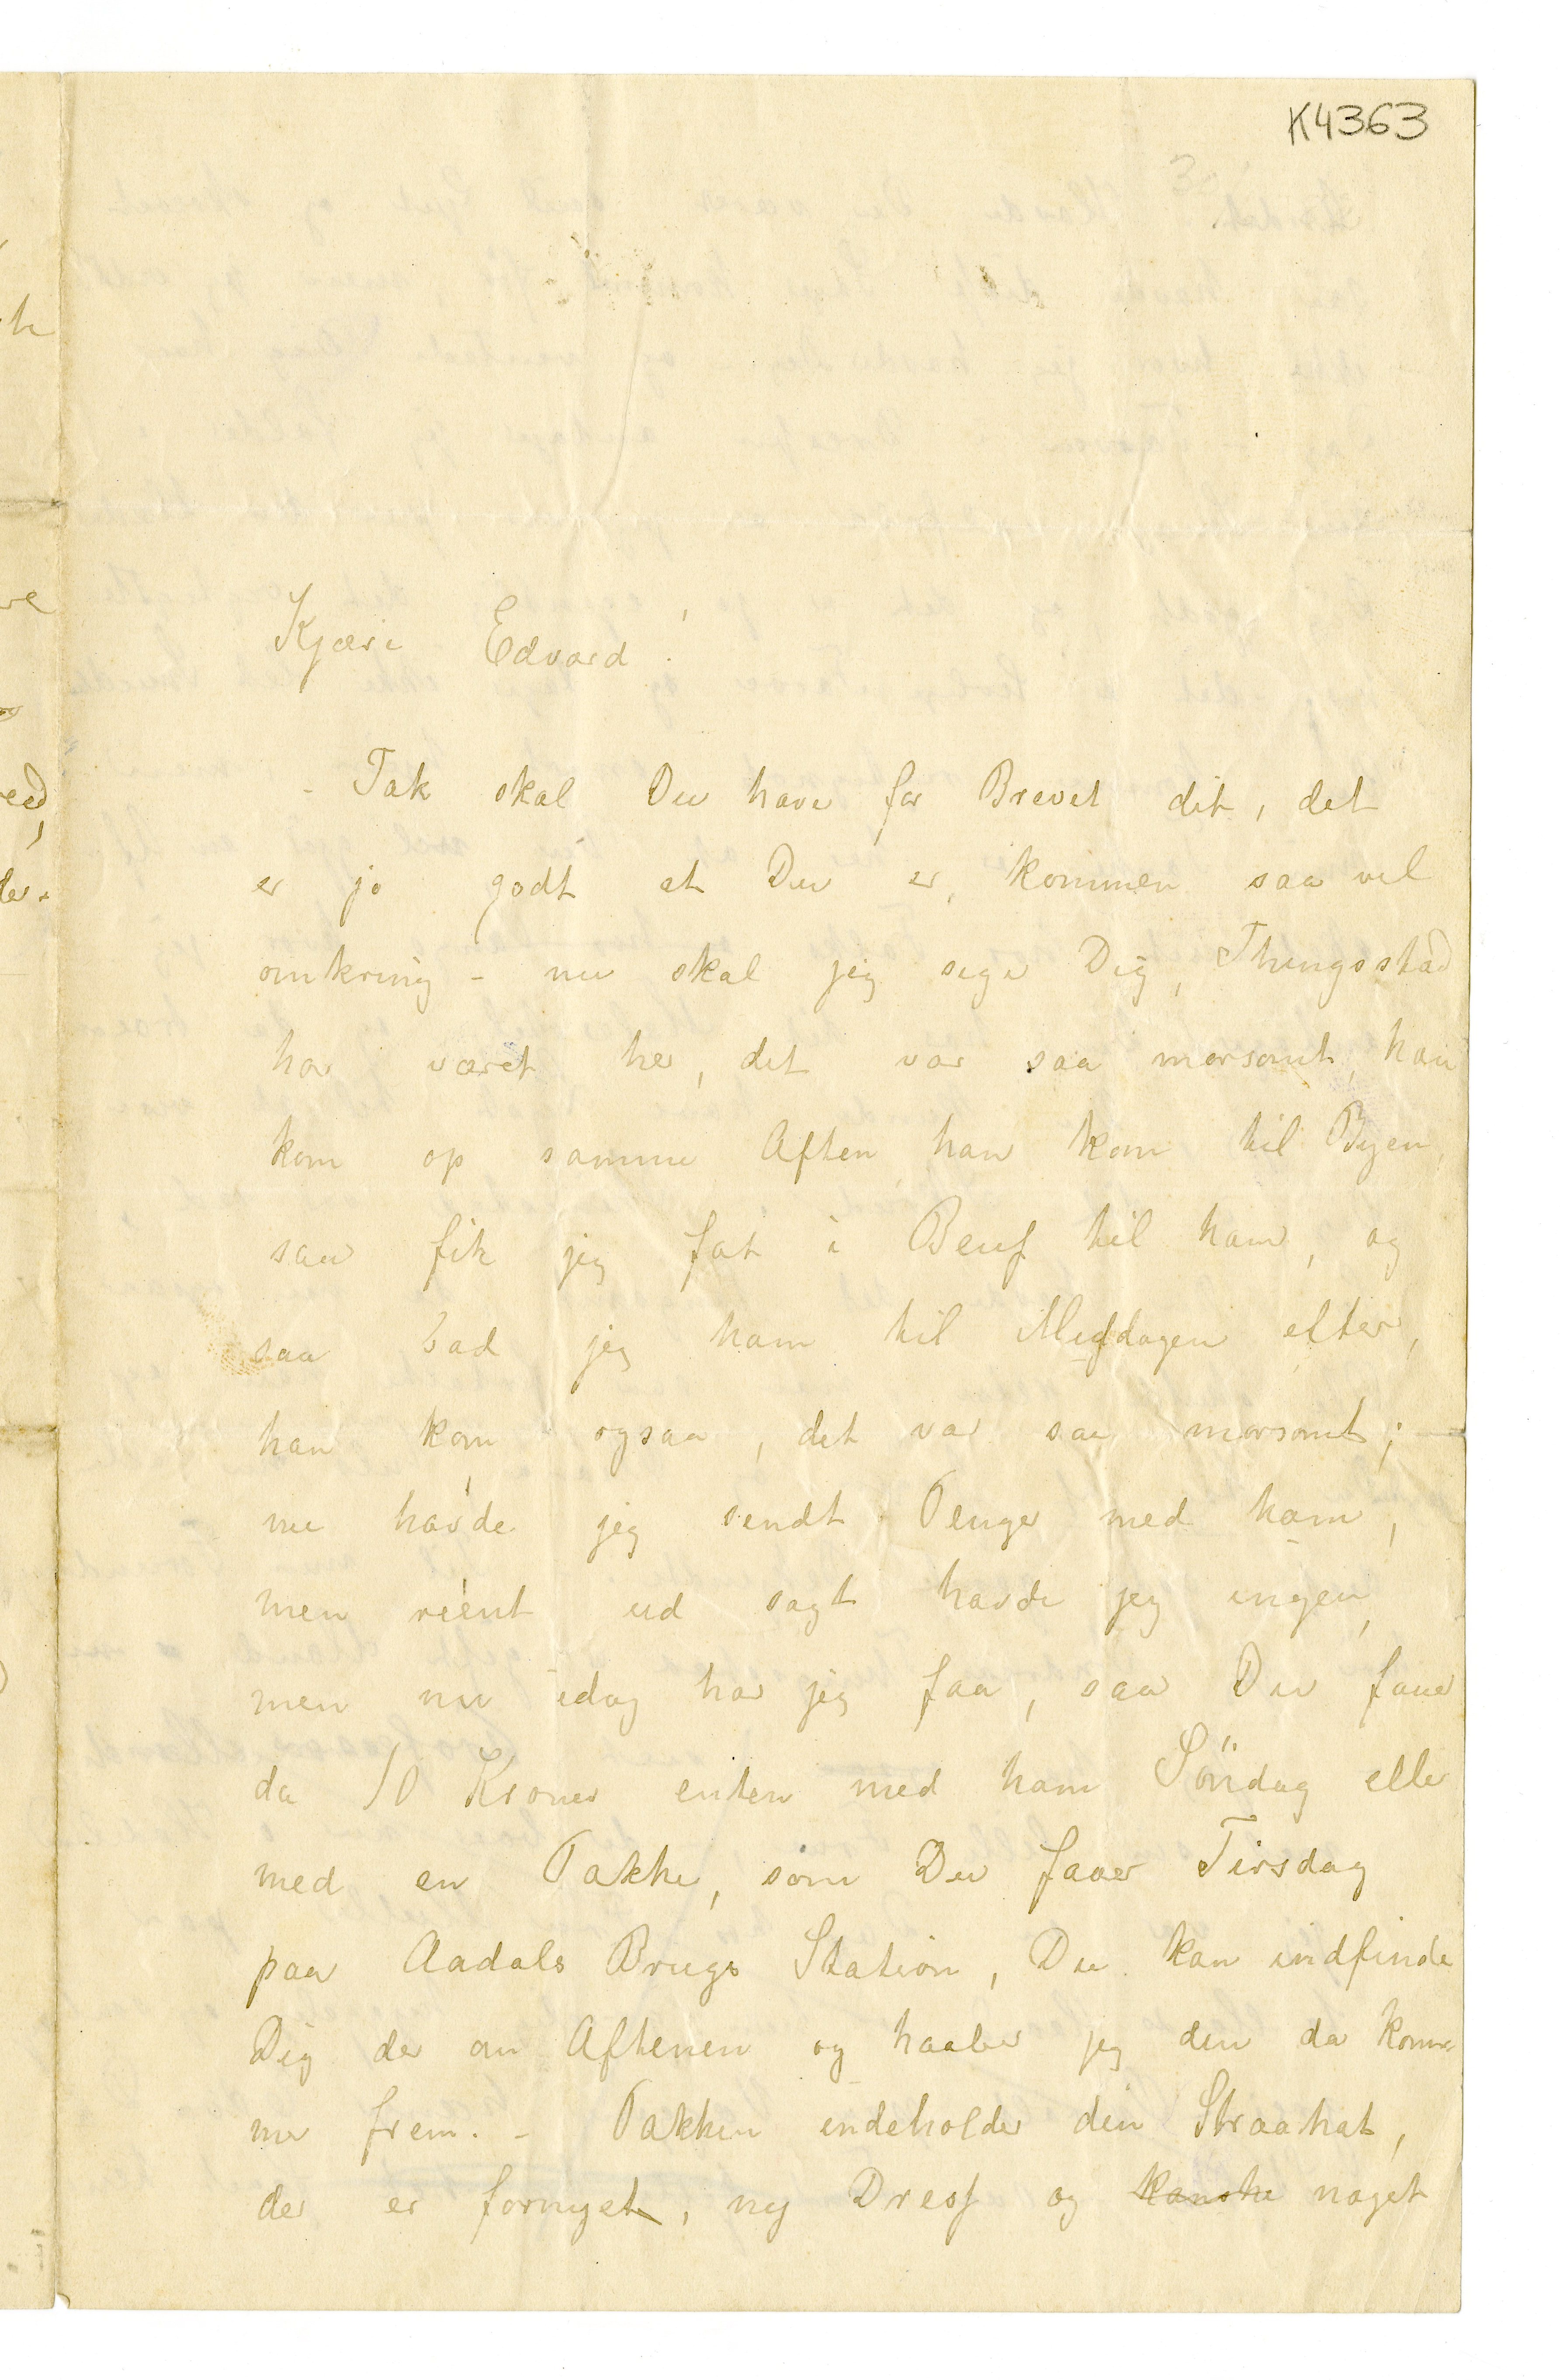 K4363
Kjære Edvard!
- Tak skal Du have for Brevet dit, det
er jo godt at Du er kommen saa vel
omkring - nu skal jeg sige Dig, Thingsstad
har været her, det var saa morsomt, han
kom op samme Aften han kom til Byen,
saa fik jeg fat i Beuf til ham, og
saa bad jeg ham til Middagen efter,
han kom ogsaa, det var saa morsomt; -
nu havde jeg sendt Penger med ham,
men réent ud sagt havde jeg ingen,
men nu idag har jeg faa, saa Du faaer
da 10 Kroner enten med ham Söndag eller
med en Pakke, som Du faaer Tirsdag
paa Aadals Brugs Station, Du kan indfinde
Dig der om Aftenen og haaber jeg den da kom-
mer frem. - Pakken indeholder din Straahat,
der er fornyet, ny Dresſ og kanske noget